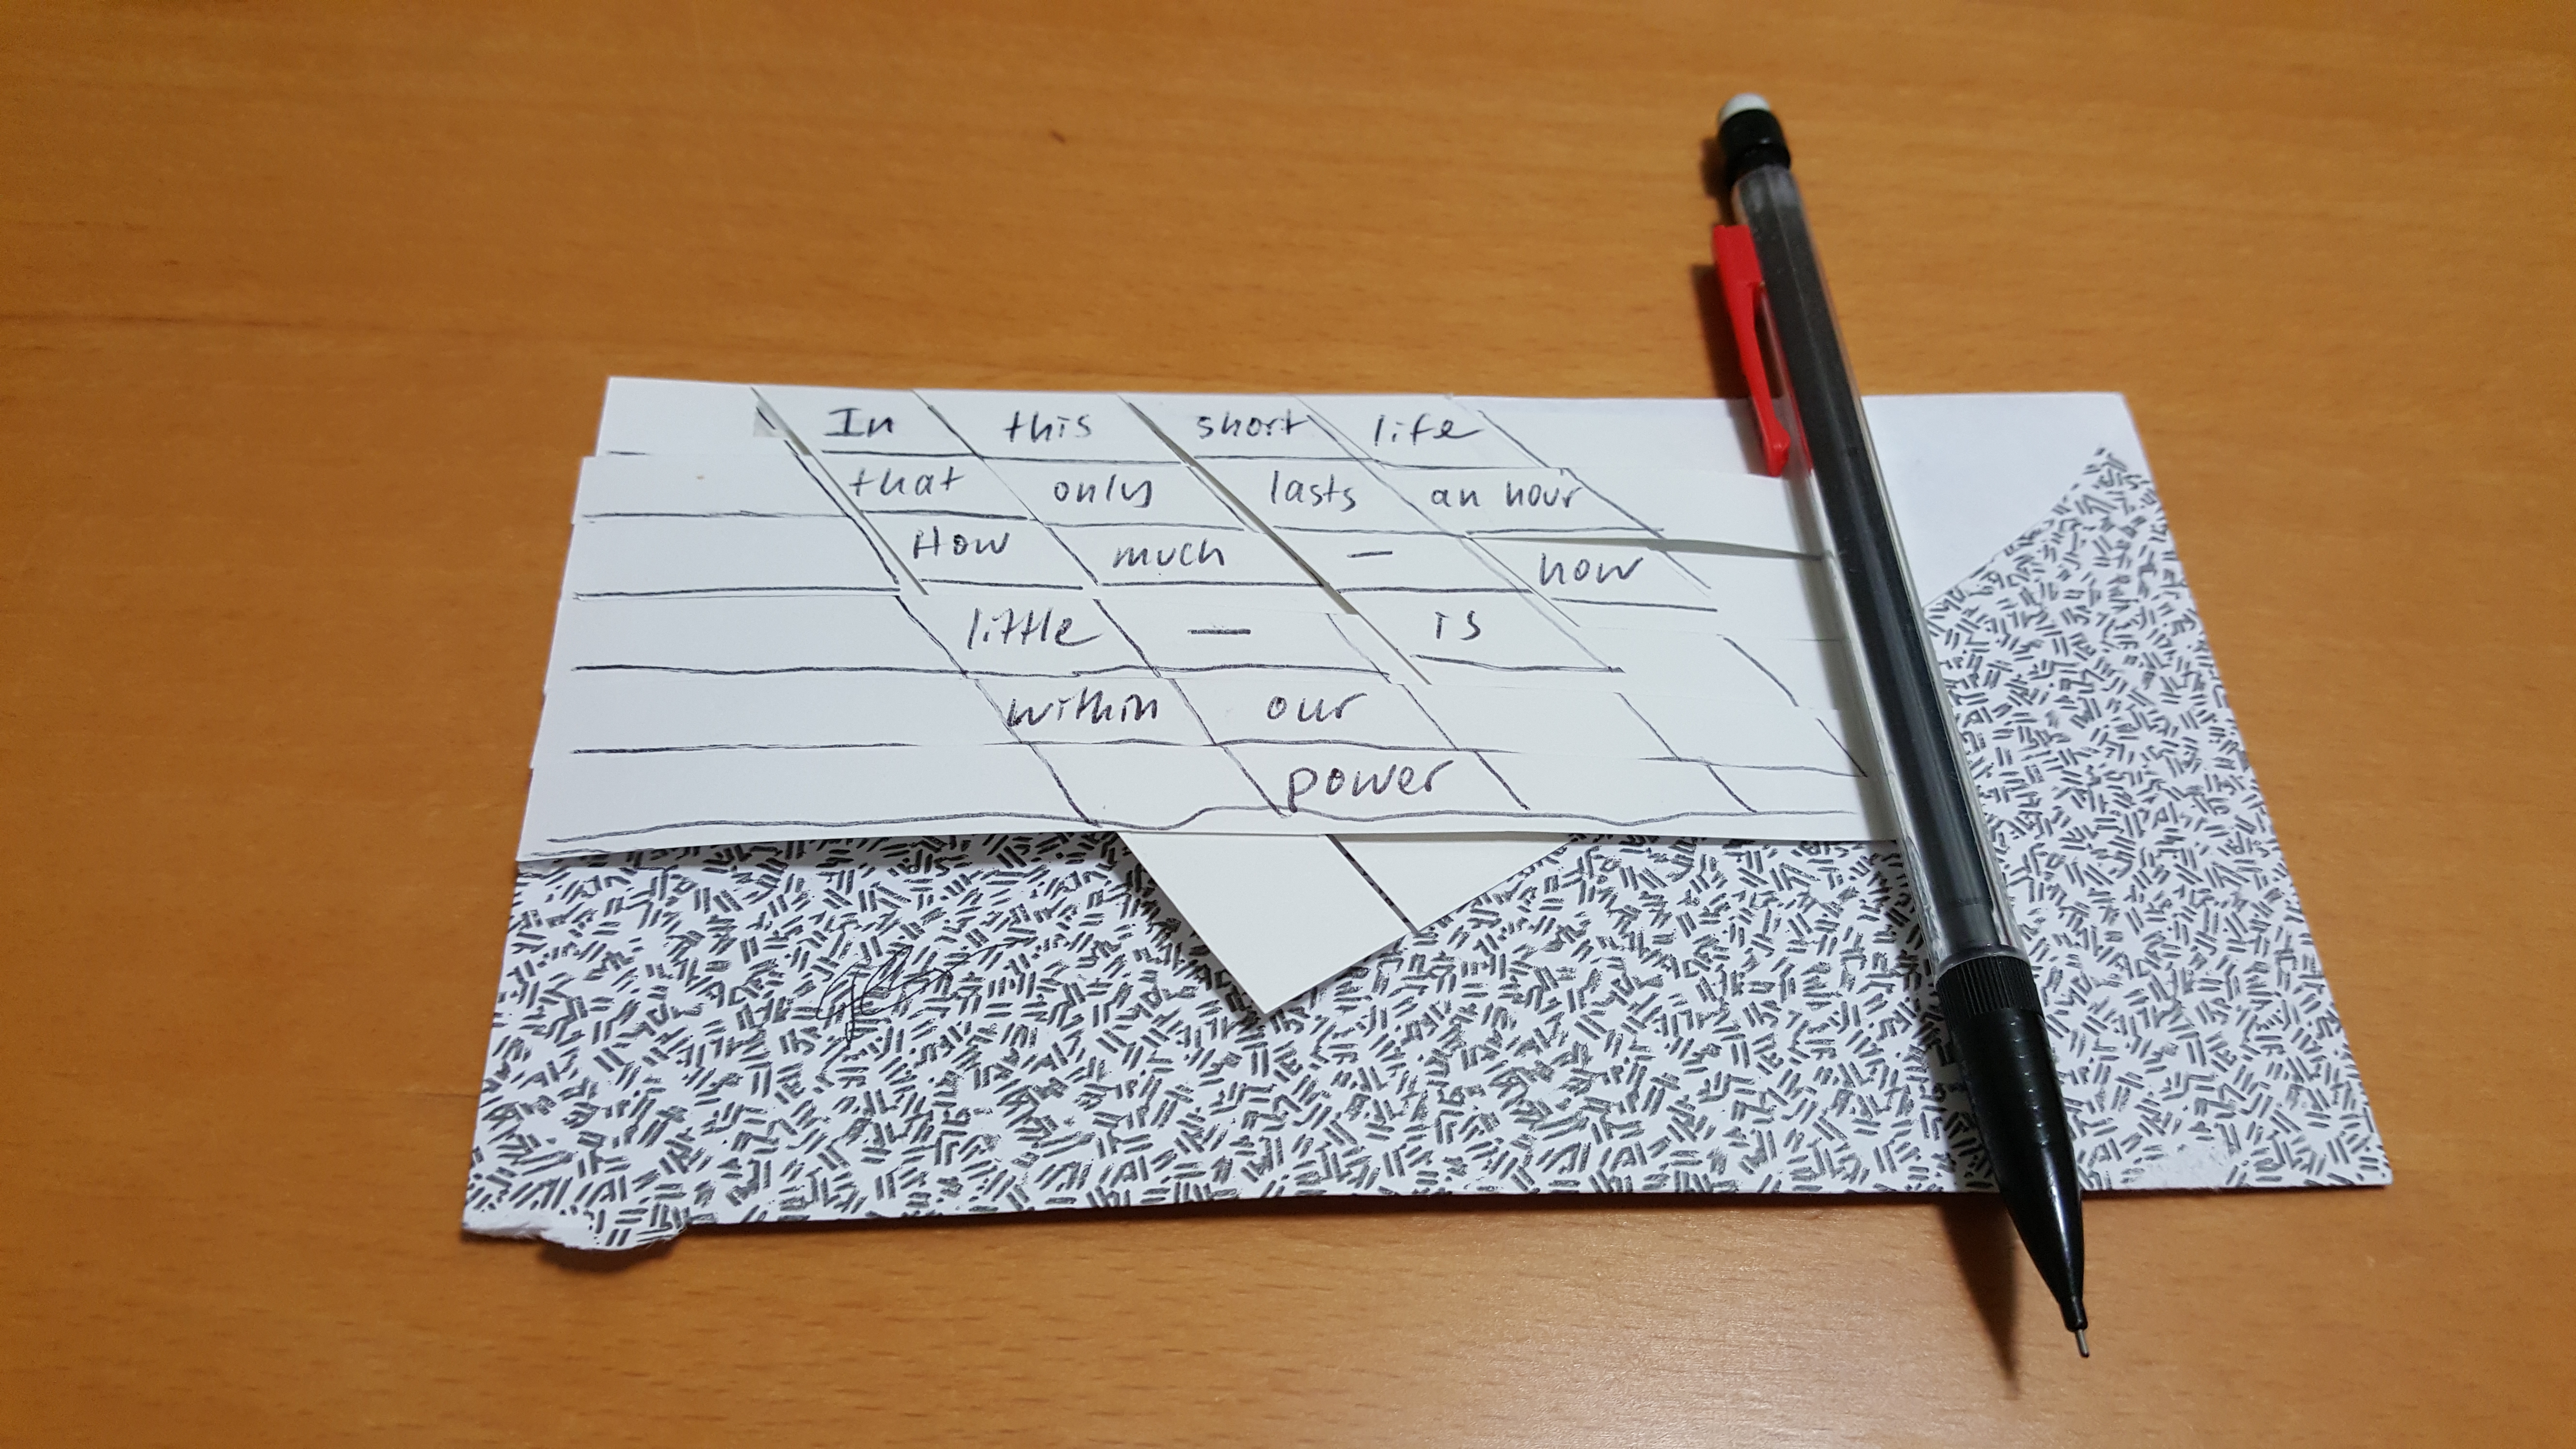 In this short life
that only lasts an hour
How much — how
little — is
within our
power